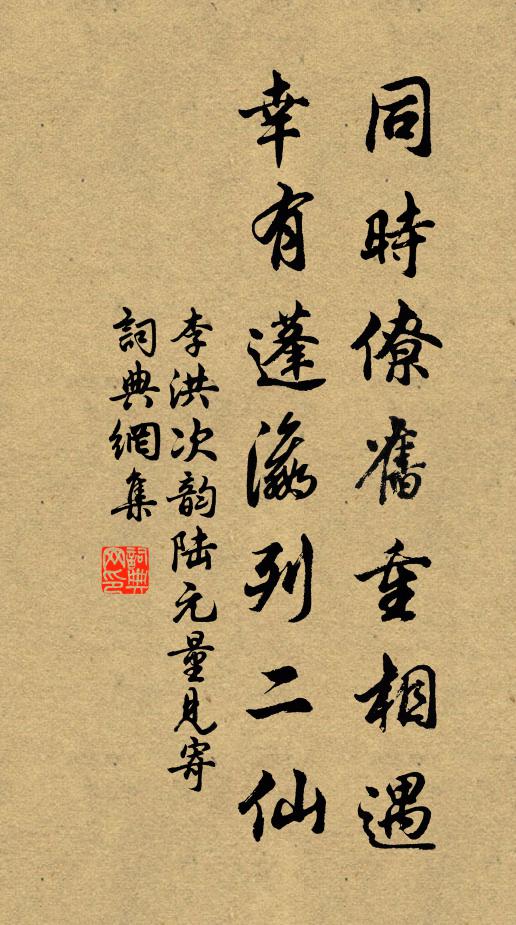 同時僚舊重相遇
幸有蓬瀛列二仙
李洪次韵陆元量見寄
詞典網集
詞典网印